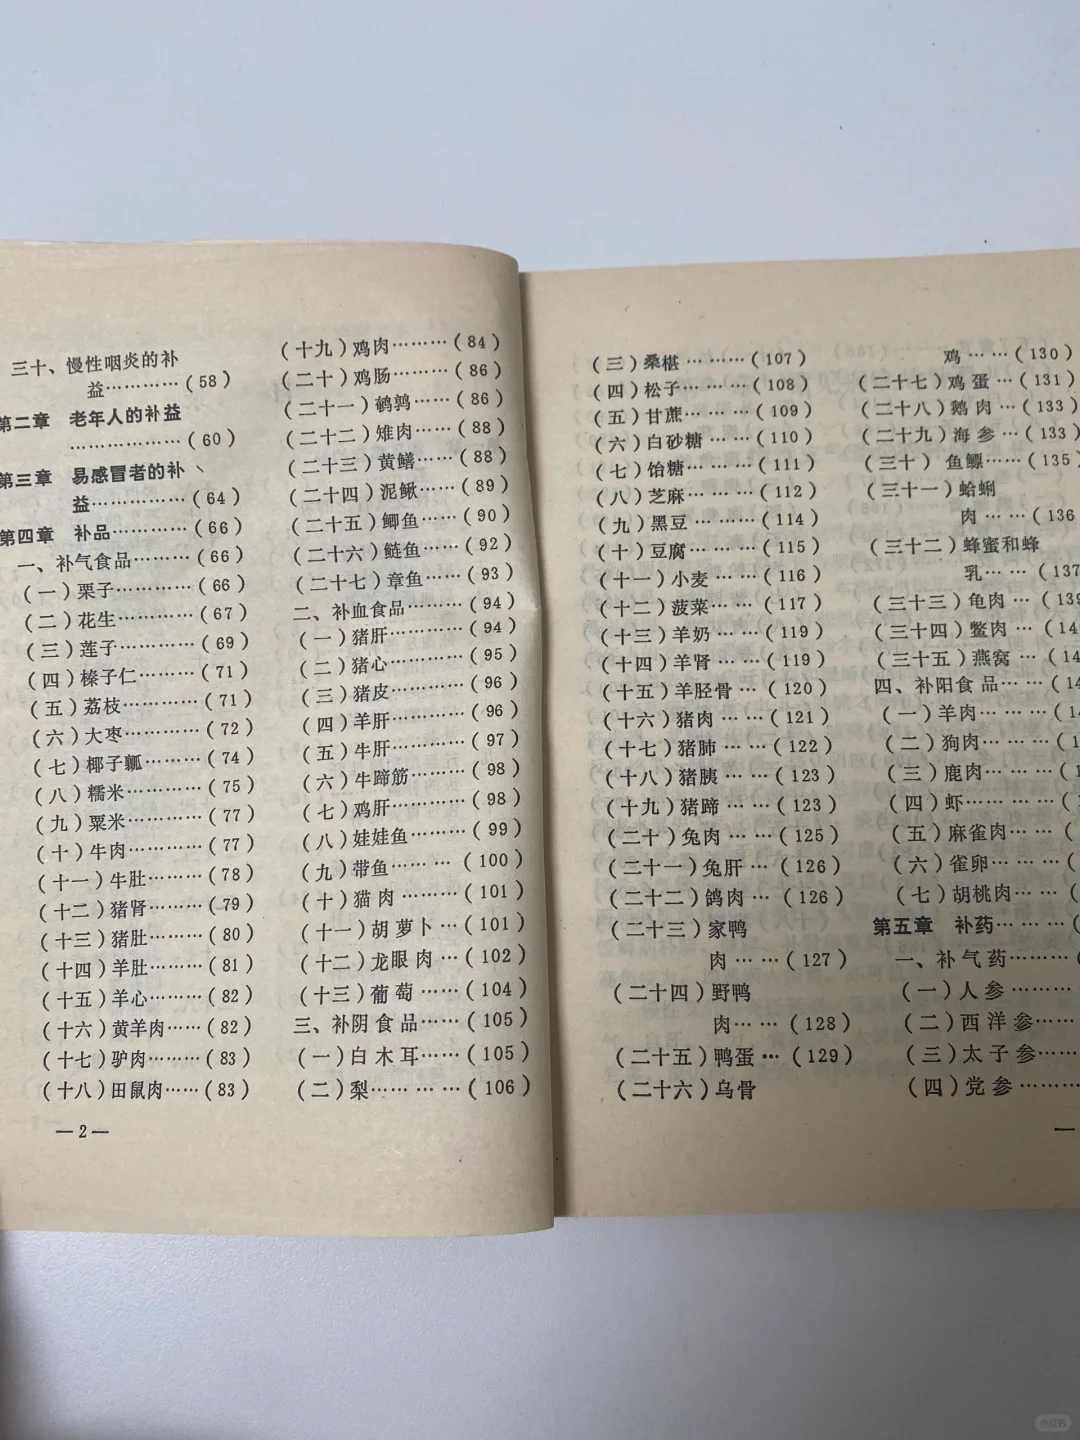 三十、慢性咽炎的补
益…………(58)
第二章 老年人的补益
………………(60)
第三章 易感冒者的补
益………………(64)
第四章 补品…………(66)
一、补气食品………(66)
(一)栗子…………(66)
(二)花生…………(67)
(三)莲子…………(69)
(四)榛子仁………(71)
(五)荔枝…………(71)
(六)大枣…………(72)
(七)椰子瓤………(74)
(八)糯米…………(75)
(九)粟米…………(77)
(十)牛肉…………(77)
(十一)牛肚………(78)
(十二)猪肾………(79)
(十三)猪肚………(80)
(十四)羊肚………(81)
(十五)羊心………(82)
(十六)黄羊肉……(82)
(十七)驴肉………(83)
(十八)田鼠肉……(83)
—2—
(十九)鸡肉………(84)
(二十)鸡肠………(86)
(二十一)鹌鹑……(86)
(二十二)雉肉……(88)
(二十三)黄鳝……(88)
(二十四)泥鳅……(89)
(二十五)鲫鱼……(90)
(二十六)鲢鱼……(92)
(二十七)章鱼……(93)
二、补血食品………(94)
(一)猪肝…………(94)
(二)猪心…………(95)
(三)猪皮…………(96)
(四)羊肝…………(96)
(五)牛肝…………(97)
(六)牛蹄筋………(98)
(七)鸡肝…………(98)
(八)娃娃鱼………(99)
(九)带鱼………(100)
(十)猫肉………(101)
(十一)胡萝卜…(101)
(十二)龙眼肉…(102)
(十三)葡萄……(104)
三、补阴食品……(105)
(一)白木耳……(105)
(二)梨…………(106)
(三)桑椹………(107)
(四)松子………(108)
(五)甘蔗………(109)
(六)白砂糖……(110)
(七)饴糖………(111)
(八)芝麻………(112)
(九)黑豆………(114)
(十)豆腐………(115)
(十一)小麦……(116)
(十二)菠菜……(117)
(十三)羊奶……(119)
(十四)羊肾……(119)
(十五)羊胫骨…(120)
(十六)猪肉……(121)
(十七)猪肺……(122)
(十八)猪胰……(123)
(十九)猪蹄……(123)
(二十)兔肉……(125)
(二十一)兔肝…(126)
(二十二)鸽肉…(126)
(二十三)家鸭
肉……(127)
(二十四)野鸭
肉……(128)
(二十五)鸭蛋…(129)
(二十六)乌骨
鸡……(130)
(二十七)鸡蛋…(131)
(二十八)鹅肉…(133)
(二十九)海参…(133)
(三十)鱼鳔……(135)
(三十一)蛤蜊
肉……(136
(三十二)蜂蜜和蜂
乳……(137
(三十三)龟肉…(139
(三十四)鳖肉…(14
(三十五)燕窝…(14
四、补阳食品……(14
(一)羊肉………(14
(二)狗肉………(1
(三)鹿肉………(1
(四)虾…………(
(五)麻雀肉……(
(六)雀卵………(
(七)胡桃肉……(
第五章 补药………(
一、补气药………(
(一)人参………
(二)西洋参……
(三)太子参……
(四)党参………
—
小红书